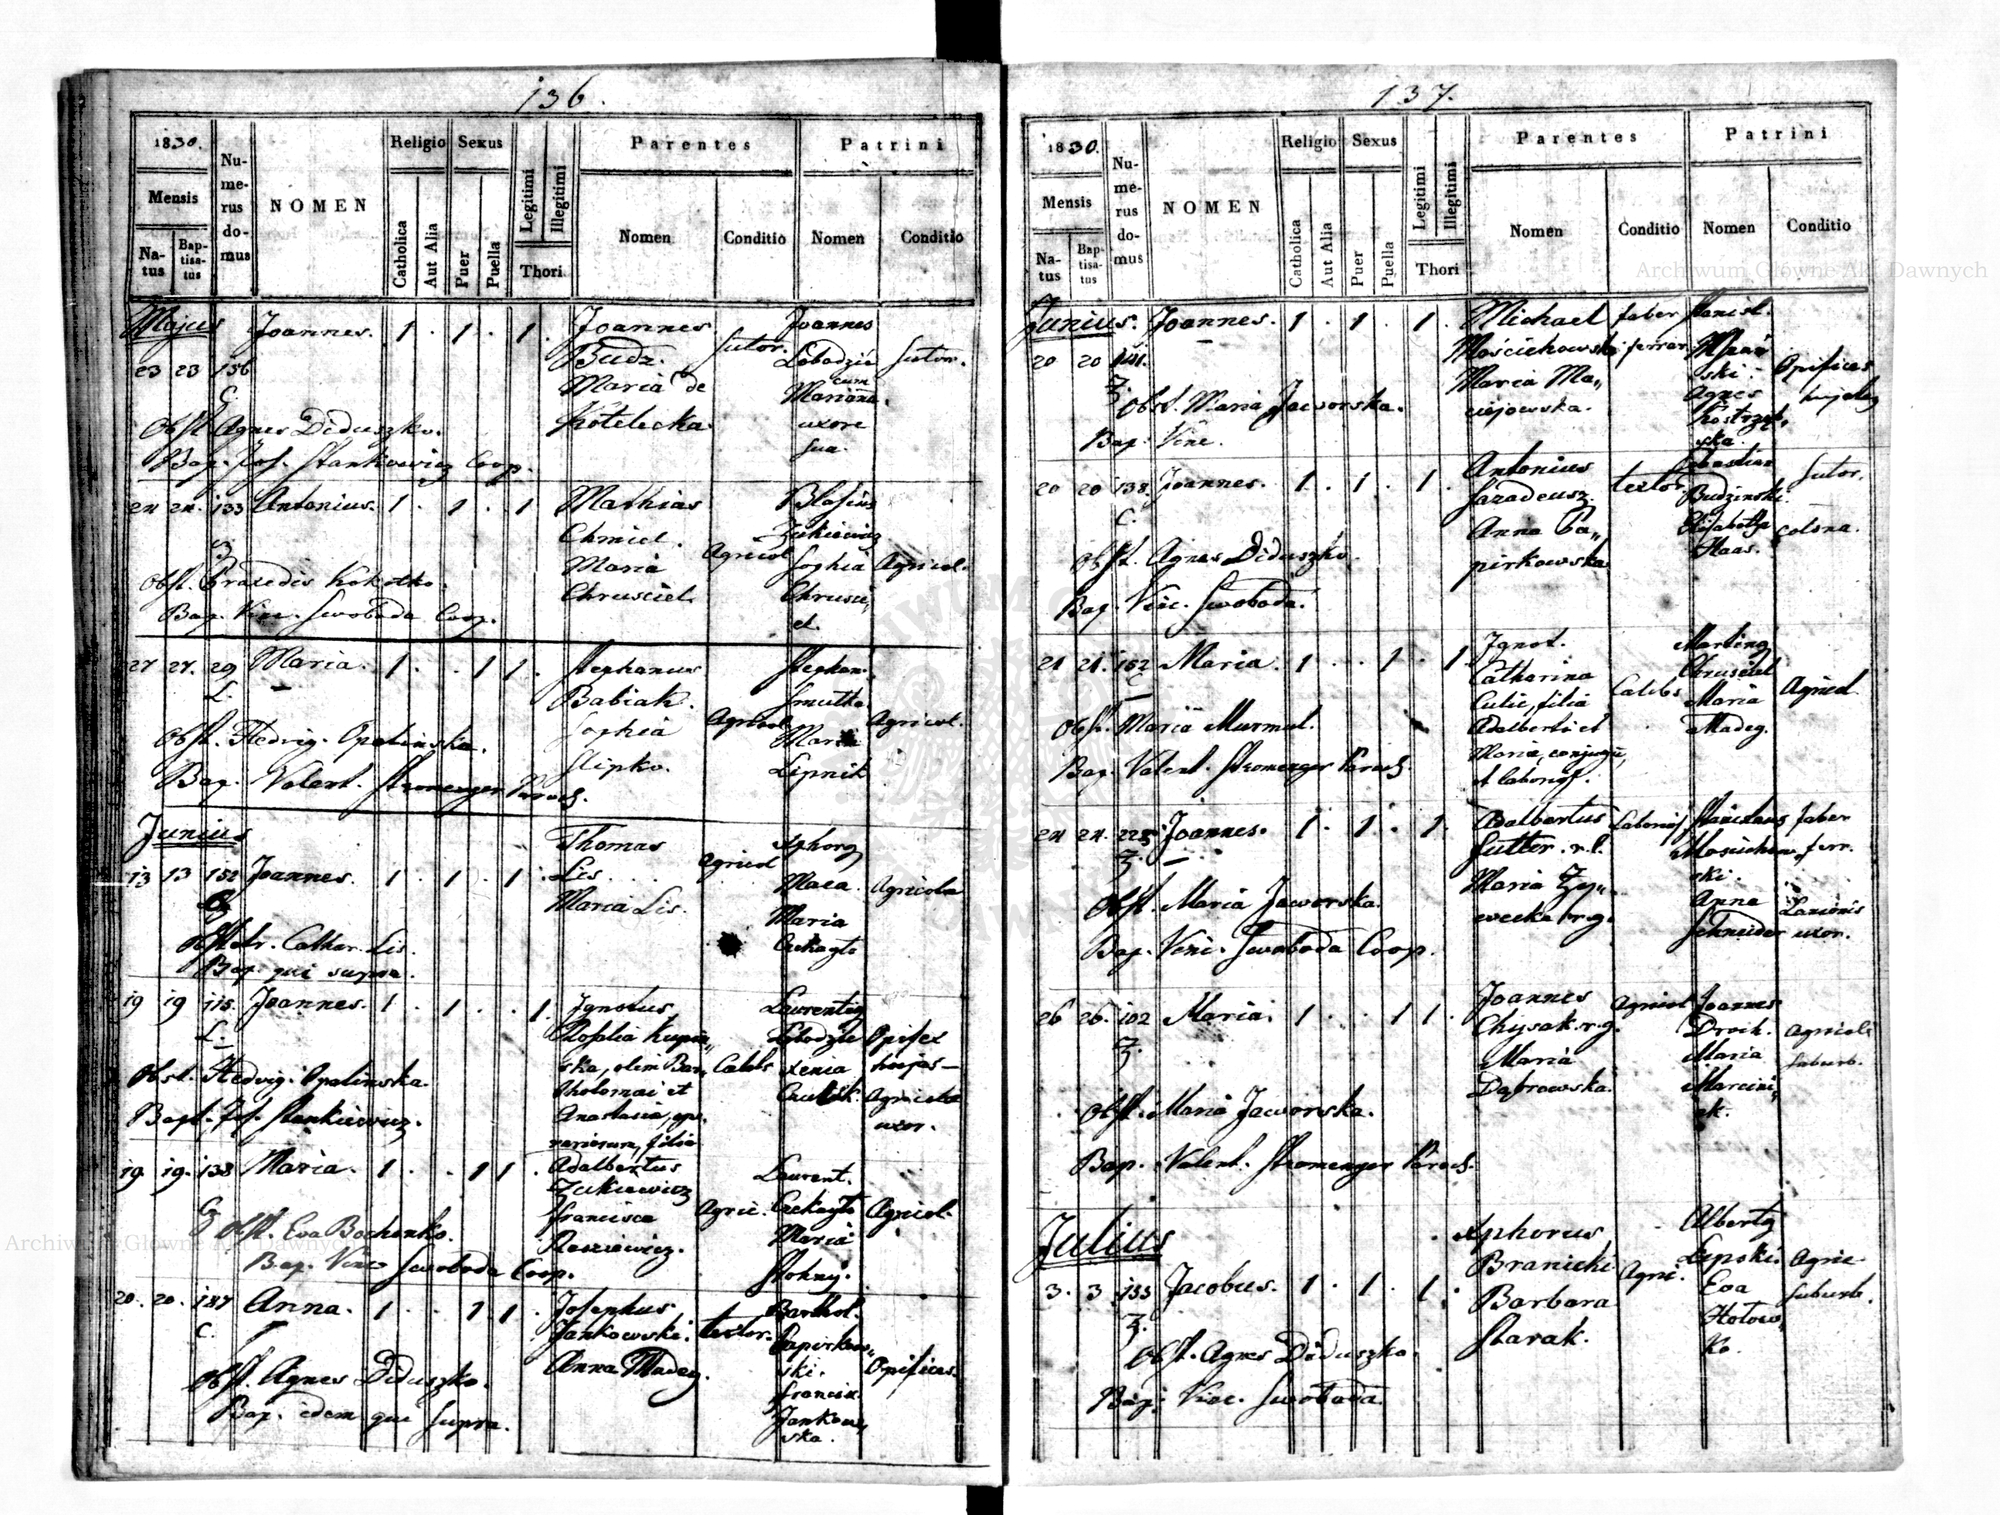 136.
1830.
Mensis
Natus
Baptisatus
Numerus domus
NOMEN
Religio
Catholica
Aut Alia
Sexus
Puer
Puella
Legitimi
Illegitimi
Thori
Parentes
Nomen
Conditio
Patrini
Nomen
Conditio
Majus
23 23 156 Joannes. 1 . 1 . 1.
Joannes
Budz.
Maria de
Kotelecka
Sutor.
Joannes
cum
Mariana
uxore
sua.
Sutor.
Obst. Agnes Diduszko.
Bap. Jos. Stankiewicz Coop.
24 24. 133 Antonius. 1 . 1 . 1
Mathias
Chmiel.
Maria
Chrusciel.
Agricol
Blasius
Zukiewicz
Sophia
Chrusci,,
el.
Agricol.
Obst. Praxedis Kokotko.
Bap. Vinc. Swoboda Coop.
27 27. 29 Maria. 1 . . 1 1 .
L.
Stephanus
Babiak.
Sophia
Slipko.
Agricol.
Stephan.
Smutko.
Maria
Lipnik
Agricol.
Obst. Hedvig. Opalinska.
Bap. Valent. Stromenger Paroch.
Junius
13 13 152 Joannes. 1 . 1 . 1 .
Thomas
Lis.
Maria Lis.
Agricol
Maria
Agricola
Obstetr. Cathar. Lis.
Bap. qui supra.
19 19 115. Joannes. 1 . 1 . . 1.
L.
Ignotus,
Rosalia
ska, olim Bar,,
tholomai et
Anastasia,
filia
Caelebs
Laurentig
Xenia
Opifex
hujas
Agricola
uxor.
Obst. Hedvig. Opalinska.
Bapt. Jos. Stankiewicz.
19. 19. 138 Maria. 1 . . 1 1 .
Adalbertus
Zukiewicz
Francisca
Agric.
Laurent.
Maria
Agricol.
Obst. Eva Bochenko.
Bap. Vinc Swoboda Coop.
20. 20. 187 Anna. 1 . . 1 1 .
C.
Josephus
Jankowski.
Anna Madej.
textor.
Barthol.
Papirkow,,
ski.
Francisc.
Jankow,,
ska.
Opifices.
Obst. Agnes Diduszko.
Bap. idem qui supra.
137.
1830.
Mensis
Natus
Baptisatus
Numerus domus
NOMEN
Religio
Catholica
Aut Alia
Sexus
Puer
Puella
Legitimi
Illegitimi
Thori
Parentes
Nomen
Conditio
Patrini
Nomen
Conditio
Junius. Joannes. 1 . 1 . 1.
20 20 141.
Michael
Mościchowski
Maria Ma,,
ciejowska.
faber
ferrar
Stanisl.
ski.
Agnes
Kostrzęb,
ska.
Opifices
Obst. Maria Jaworska.
Bap. Vinc.
20 20 138 Joannes. 1 . 1 . 1.
C.
Antonius
Anna Pa,,
pirkowska
textor
Sebastian
Budzinski.
Elisabetha
Haas.
Sutor.
Obst. Agnes Diduszko.
Bap. Vinc. Swoboda.
21 21. 152 Maria. 1 . . 1 . 1.
Ignot.
Catharina
filia
Adalberti et
Maria, conjugu,
Caelebs
Marting
Chrusciel
Maria
Madej.
Agricol
Obst. Maria Murmul.
Bap. Valent. Stromenger Paroch.
24 24. 225 Joannes. 1 . 1 . 1.
Adalbertus
Sutter. r. l.
Maria Zy,,
wecka r. g.
Stanislaus
Mosichow,,
ski.
Anna
Schneider
faber
ferr.
Lanionis
uxor.
Obst. Maria Jaworska.
Bap. Vinc. Swoboda Coop.
26 26. 102 Maria. 1 . . 1 1.
Joannes
Chysak. r. g.
Maria
Dąbrowska.
Agricol
Joannes
Maria
Marcini,,
ak.
Agricola
suburb.
Obst. Maria Jaworska.
Bap. Valent. Stromenger Paroch.
Julius
3. 3. 155 Jacobus. 1 . 1 . 1.
Branicki
Barbara
Starak.
Agri.
Albertg
Lipski.
Eva
Hołow,,
ko.
Agric
suburb.
Obst. Agnes Diduszko.
Bap. Vinc. Swoboda.
Archiwum Główne Akt Dawnych
Archiwum Główne Akt Dawnych